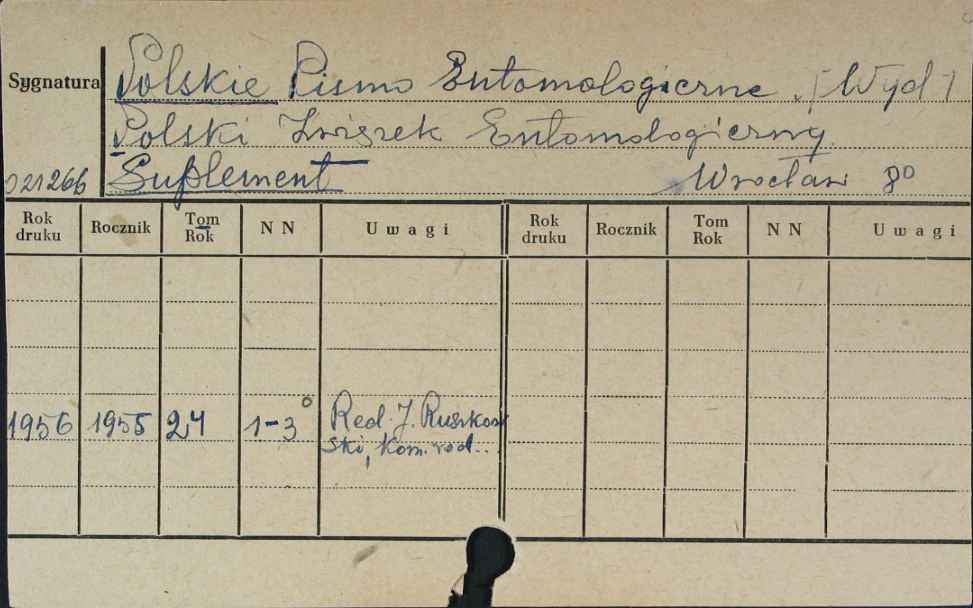 Sygnatura Polskie Pismo Entomologiczne. [Wyd]
Polski Związek Entomologiczny.
021266 Suplement Wrocław 8°
Rok druku Rocznik Tom Rok N N Uwagi Rok druku Rocznik Tom Rok N N Uwagi
1956 1955 24 1-3° Red. J. Ruszkow
ski, Kom. red...